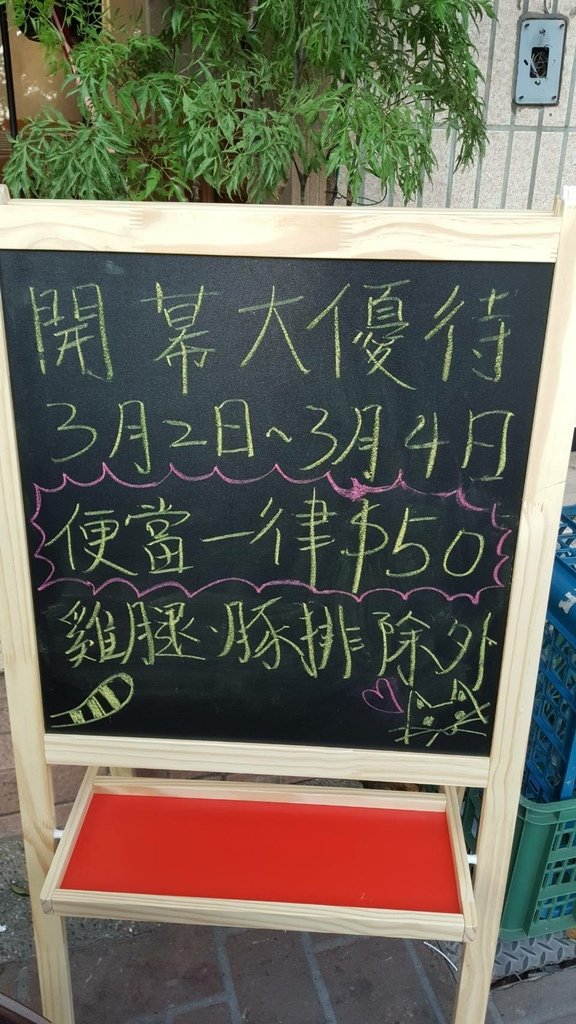 開幕大優待
3月2日~3月4日
便當一律$50
雞腿、豚排除外